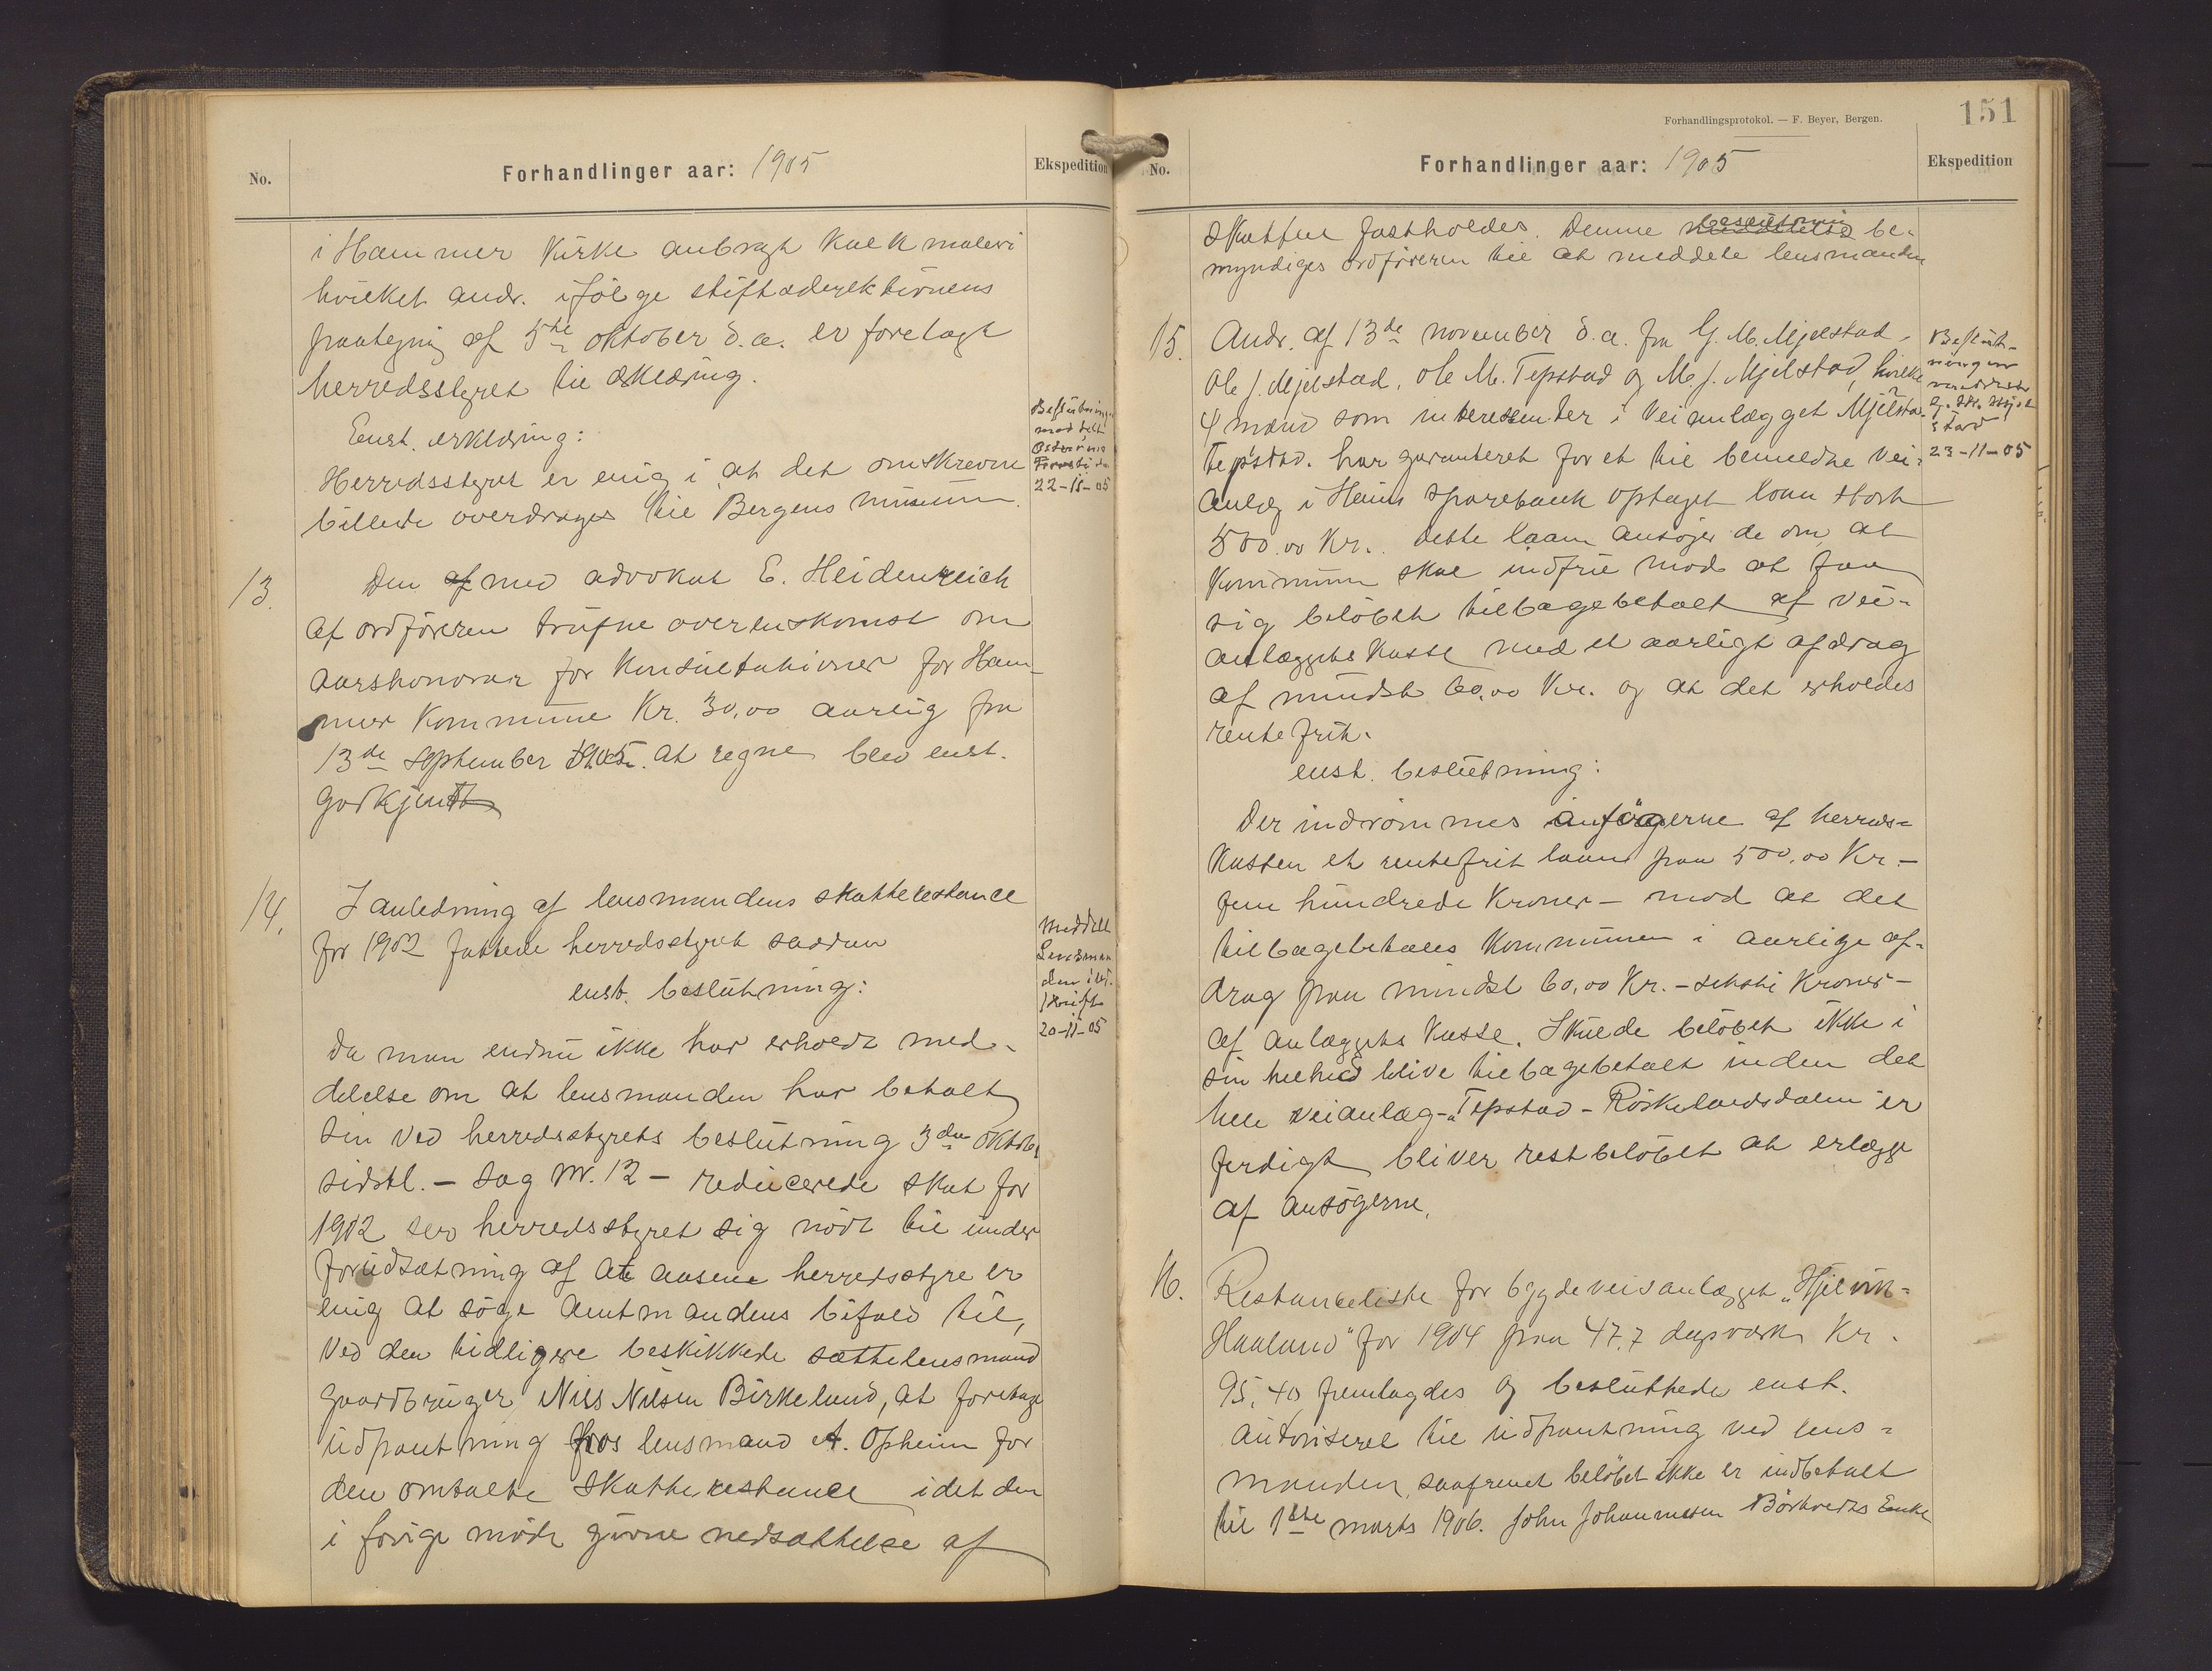 No.
Forhandlinger aar: 1905
Ekspedition
i Hammer Kirke anbragt Kalkmaleri
hvilket andr. ifölge stiftsdirektionens
paategning af 5te oktober d.a. er forelagt
herredsstyret til erklæring.
Enst. erklæring:
Herredsstyret er enig i at det omskrevne
billede overdrages til Bergens museum.
Beslutningen
meddelt
22-11-05
13.
Den af med advokat E. Heidenreich
af ordföreren trufne overenskomst om
aarshonorar for Konsultationer for Ham-
mer Kommune Kr. 30,00 aarlig fra
13de september 1905. at regne blev enst.
godkjendt
14.
I anledning af lensmandens skatterestance
for 1902 fattede herredsstyret saadan
enst. beslutning:
Da man endnu ikke har erholdt med-
delelse om at lensmanden har betalt
sin ved herredsstyrets beslutning 3die oktober
sidstl. - sag nr. 12 - reducerede skat for
1902 ser herredsstyret sig nödt til under
forudsætning af at Aasene herredsstyre er
enig at söge amtmandens bifald til,
ved den tidligere beskikkede sættelensmand
gaardbruger Nils Nilsen Birkeland, at foretage
udpantning hos lensmand A. Opheim for
den omtalte skatterestance idet den
i forrige möde givne nedsættelse af
Meddelt
Lensman
den i ud-
skrift
20-11-05
Forhandlingsprotokol. — F. Beyer, Bergen.
151
No.
Forhandlinger aar: 1905
Ekspedition
skatten fastholdes. Denne beslutning be-
myndiges ordföreren til at meddele lensmanden
15.
Andr. af 13de november d.a. fra G. M. Mjelstad,
Ole J. Mjelstad, Ole M. Tepstad og M. J. Mjelstad, hvilke
4 mænd som interesenter i Veianlægget Mjelsta-
Tepstad. har garanteret for et til bemeldte vei-
anlæg i Haus sparebank optaget laan stort
500.00 Kr. Dette laan ansöger de om, at
Kommunen skal indfri mod at faa
sig belöbet tilbagebetalt af vei-
anlæggets Kasse med et aarligt afdrag
af mindst 60,00 Kr. og at det erholdes
rentefrit.
enst. beslutning:
Beslut-
ningen
meddelt
G. M. Mjel
stad
23-11-05
Der indrömmes ansögerne af herreds-
kassen et rentefrit laan paa 500,00 Kr. -
fem hundrede Kroner - mod at det
tilbagebetales Kommunen i aarlige af-
drag paa mindst 60,00 Kr. - seksti Kroner -
af anlæggets Kasse. Skulde belöbet ikke i
sin helhed blive tilbagebetalt inden det
hele veianlæg - "Tepstad - Röskelandsdalen er
ferdigt bliver restbelöbet at erlægge
af ansögerne.
16.
Restanceliste for bygdeveisanlægget "Hjelvik-
Haaland" for 1904 paa 47,7 dagsværk Kr.
95,40 fremlagdes og besluttede enst.
autoriseret til udpantning ved lens-
manden, saafremt belöbet ikke er indbetalt
til 1ste marts 1906. John Johannesen Börtveits Enke